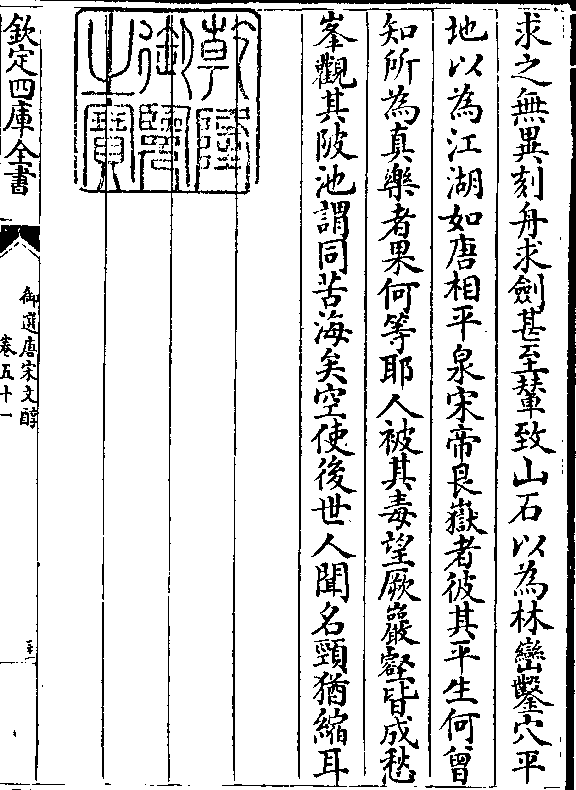 求之無異刻舟求劍甚至輦致山石以為林巒鑿穴平
地以為江湖如唐相平泉宋帝艮嶽者彼其平生何曾
知所為真樂者果何等耶人被其毒望厥巖壑皆成愁
峯觀其陂池謂同苦海矣空使後世人聞名頸猶縮耳
乾隆
御覽
之寶
欽定四庫全書
御選唐宋文醇
卷五十一